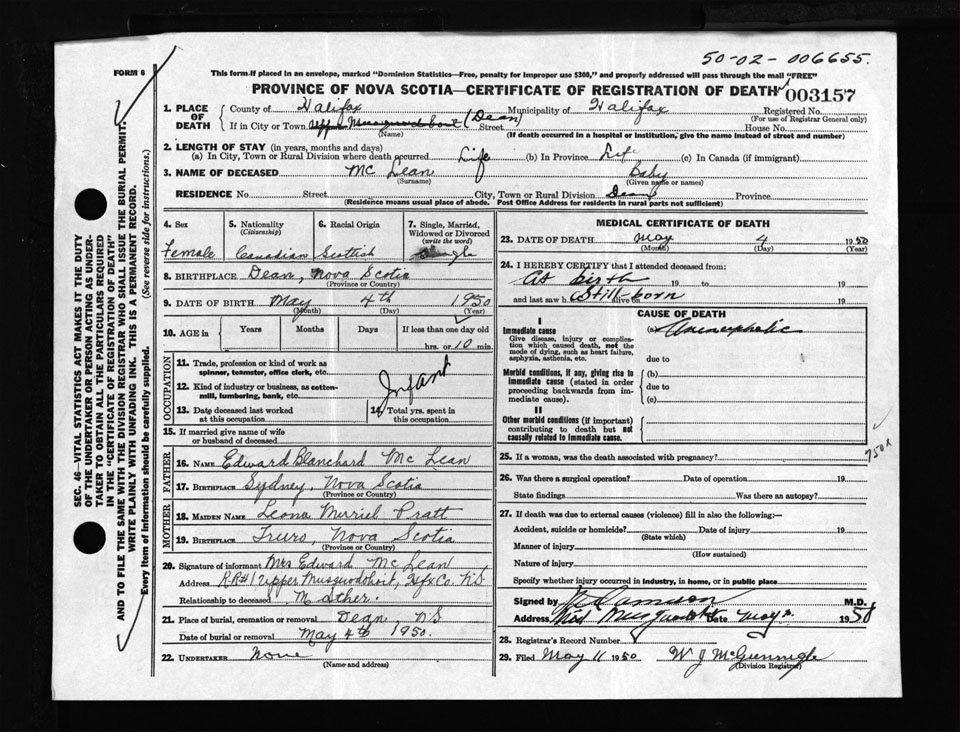 50-02-006655.
FORM 6
This form if placed in an envelope, marked "Dominion Statistics—Free, penalty for improper use $300," and properly addressed will pass through the mail "FREE"
PROVINCE OF NOVA SCOTIA—CERTIFICATE OF REGISTRATION OF DEATH 003157
1. PLACE OF DEATH County of Halifax Municipality of Halifax Registered No.
(For use of Registrar General only)
If in City or Town Upper Musquodoboit (Dean) Street House No.
(Name) (If death occurred in a hospital or institution, give the name instead of street and number)
2. LENGTH OF STAY (in years, months and days)
(a) In City, Town or Rural Division where death occurred Life (b) In Province Life (c) In Canada (if immigrant)
3. NAME OF DECEASED Mc Lean Baby
(Surname) (Given name or names)
RESIDENCE No. Street City, Town or Rural Division Dean Province
(Residence means usual place of abode. Post Office Address for residents in rural parts not sufficient)
4. Sex 5. Nationality 6. Racial Origin 7. Single, Married, Widowed or Divorced
(Citizenship) (write the word)
Female Canadian Scottish Single
8. BIRTHPLACE Dean, Nova Scotia
(Province or Country)
9. DATE OF BIRTH May 4th 1950
(Month) (Day) (Year)
10. AGE in Years Months Days If less than one day old
hrs. or 10 min.
OCCUPATION
11. Trade, profession or kind of work as spinner, teamster, office clerk, etc.
12. Kind of industry or business, as cotton-mill, lumbering, bank, etc.
Infant
13. Date deceased last worked at this occupation 14. Total yrs. spent in this occupation
15. If married give name of wife or husband of deceased
FATHER
16. NAME Edward Blanchard Mc Lean
17. BIRTHPLACE Sydney, Nova Scotia
(Province or Country)
MOTHER
18. MAIDEN NAME Leona Murriel Pratt
19. BIRTHPLACE Truro, Nova Scotia
(Province or Country)
20. Signature of informant Mrs Edward Mc Lean
Address R.R#1 Upper Musquodoboit, Hfx Co. N.S
Relationship to deceased Mother.
21. Place of burial, cremation or removal Dean, N.S
Date of burial or removal May 4th 1950.
22. UNDERTAKER None
(Name and address)
MEDICAL CERTIFICATE OF DEATH
23. DATE OF DEATH May 4 1950
(Month) (Day)
24. I HEREBY CERTIFY that I attended deceased from:
At birth 19 to 19
and last saw h alive on Stillborn
CAUSE OF DEATH
I
Immediate cause (a) Anencephalic
Give disease, injury or complication which caused death, not the mode of dying, such as heart failure, asphyxia, asthenia, etc.
due to
Morbid conditions, if any, giving rise to immediate cause (stated in order proceeding backwards from immediate cause). (b)
due to
(c)
II
Other morbid conditions (if important) contributing to death but not causally related to immediate cause.
25. If a woman, was the death associated with pregnancy?
26. Was there a surgical operation? Date of operation 19
State findings Was there an autopsy?
27. If death was due to external causes (violence) fill in also the following:—
Accident, suicide or homicide? Date of injury 19
(State which)
Manner of injury
(How sustained)
Nature of injury
Specify whether injury occurred in industry, in home, or in public place
Signed by M.D.
Address Mid Musquodoboit Date May 1950
28. Registrar's Record Number
29. Filed May 11 1950 W J McGunnigle
(Division Registrar)
SEC. 46—VITAL STATISTICS ACT MAKES IT THE DUTY
OF THE UNDERTAKER OR PERSON ACTING AS UNDER-
TAKER TO OBTAIN ALL THE PARTICULARS REQUIRED
IN THE "CERTIFICATE OF REGISTRATION OF DEATH"
AND TO FILE THE SAME WITH THE DIVISION REGISTRAR WHO SHALL ISSUE THE BURIAL PERMIT.
WRITE PLAINLY WITH UNFADING INK. THIS IS A PERMANENT RECORD.
Every item of information should be carefully supplied. (See reverse side for instructions.)